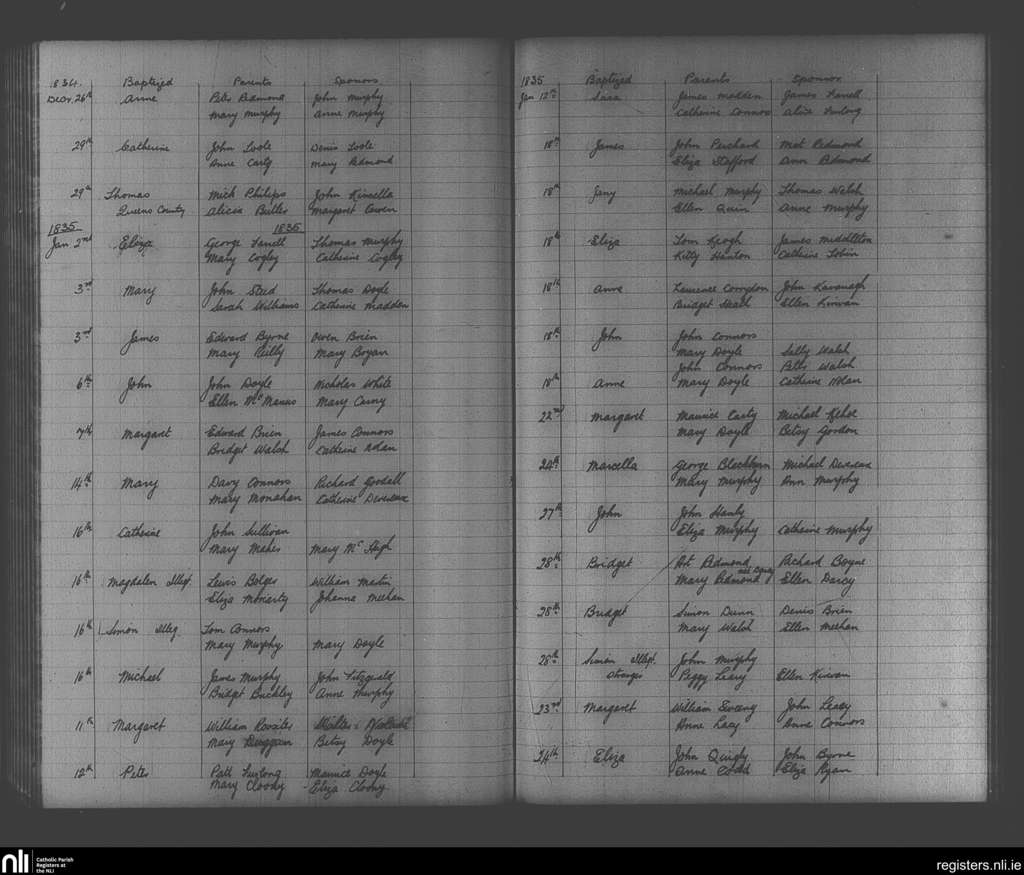 1834. Baptized Parents Sponsors
Decr. 26th Anne Peter Redmond John Murphy
Mary Murphy Anne Murphy
29th Catherine John Toole Denis Toole
Anne Carty Mary Redmond
29th Thomas Mick Philips John Kinsella
Queens County Alicia Butler Margaret Cowen
1835 1835
Jan 2nd Eliza George Farrell Thomas Murphy
Mary Cogley Catherine Cogley
3rd Mary John Sted Thomas Doyle
Sarah Williams Catherine Madden
3rd James Edward Byrne Owen Brien
Mary Reilly Mary Bogan
6th John John Doyle Nicholas White
Ellen McManus Mary Carny
7th Margaret Edward Brien James Connors
Bridget Walsh Catherine Nolan
14th Mary Davy Connors Richard Goodall
Mary Monahan Catherine Devereux
16th Catherine John Sullivan
Mary Makes Mary Mc
16th Magdalen Illegt. Lewis Bolger William Martin
Eliza Moriarty Johanna Meehan
16th Simon Illeg Tom Connors
Mary Murphy Mary Doyle
16th Michael James Murphy John Fitzgerald
Bridget Buckley Anne Murphy
11th Margaret William Rossiter Walter
Mary Duggan Betsy Doyle
12th Peter Patt Furlong Maurice Doyle
Mary Cloony Eliza Cloony
1835 Baptized Parents Sponsor
Jan 12th Sara James Madden James Farrell
Catherine Connors Alice Furlong
18th James John Perchard Mat Redmond
Eliza Stafford Ann Redmond
18th Jany Michael Murphy Thomas Walsh
Ellen Quin Anne Murphy
18th Eliza Tom Keogh James Middleton
Kitty Hanton Catherine Tobin
18th Anne Laurence Corrydon John Kavanagh
Bridget Heath Ellen Kirwan
18th John John Connors
Mary Doyle Sally Walsh
John Connors Peter Walsh
18th Anne Mary Doyle Catherine Nolan
22nd Margaret Maurice Carty Michael Kehoe
Mary Doyle Betsy Gordon
24th Marcella George Blackburn Michael Devereux
Mary Murphy Ann Murphy
27th John John Hanly
Eliza Murphy Catherine Murphy
28th Bridget Art Redmond Richard Boyne
Mary Redmond Ellen Darcy
28th Bridget Simon Dunn Denis Brien
Mary Walsh Ellen Meehan
28th Simon Illegt. John Murphy
Stranger Peggy Leary Ellen Kirwan
23rd Margaret William Sweeny John Leary
Anne Lacy Anne Connors
24th Eliza John Quigly John Byrne
Anne Codd Eliza Ryan
nli Catholic Parish
Registers at
the NLI
registers.nli.ie